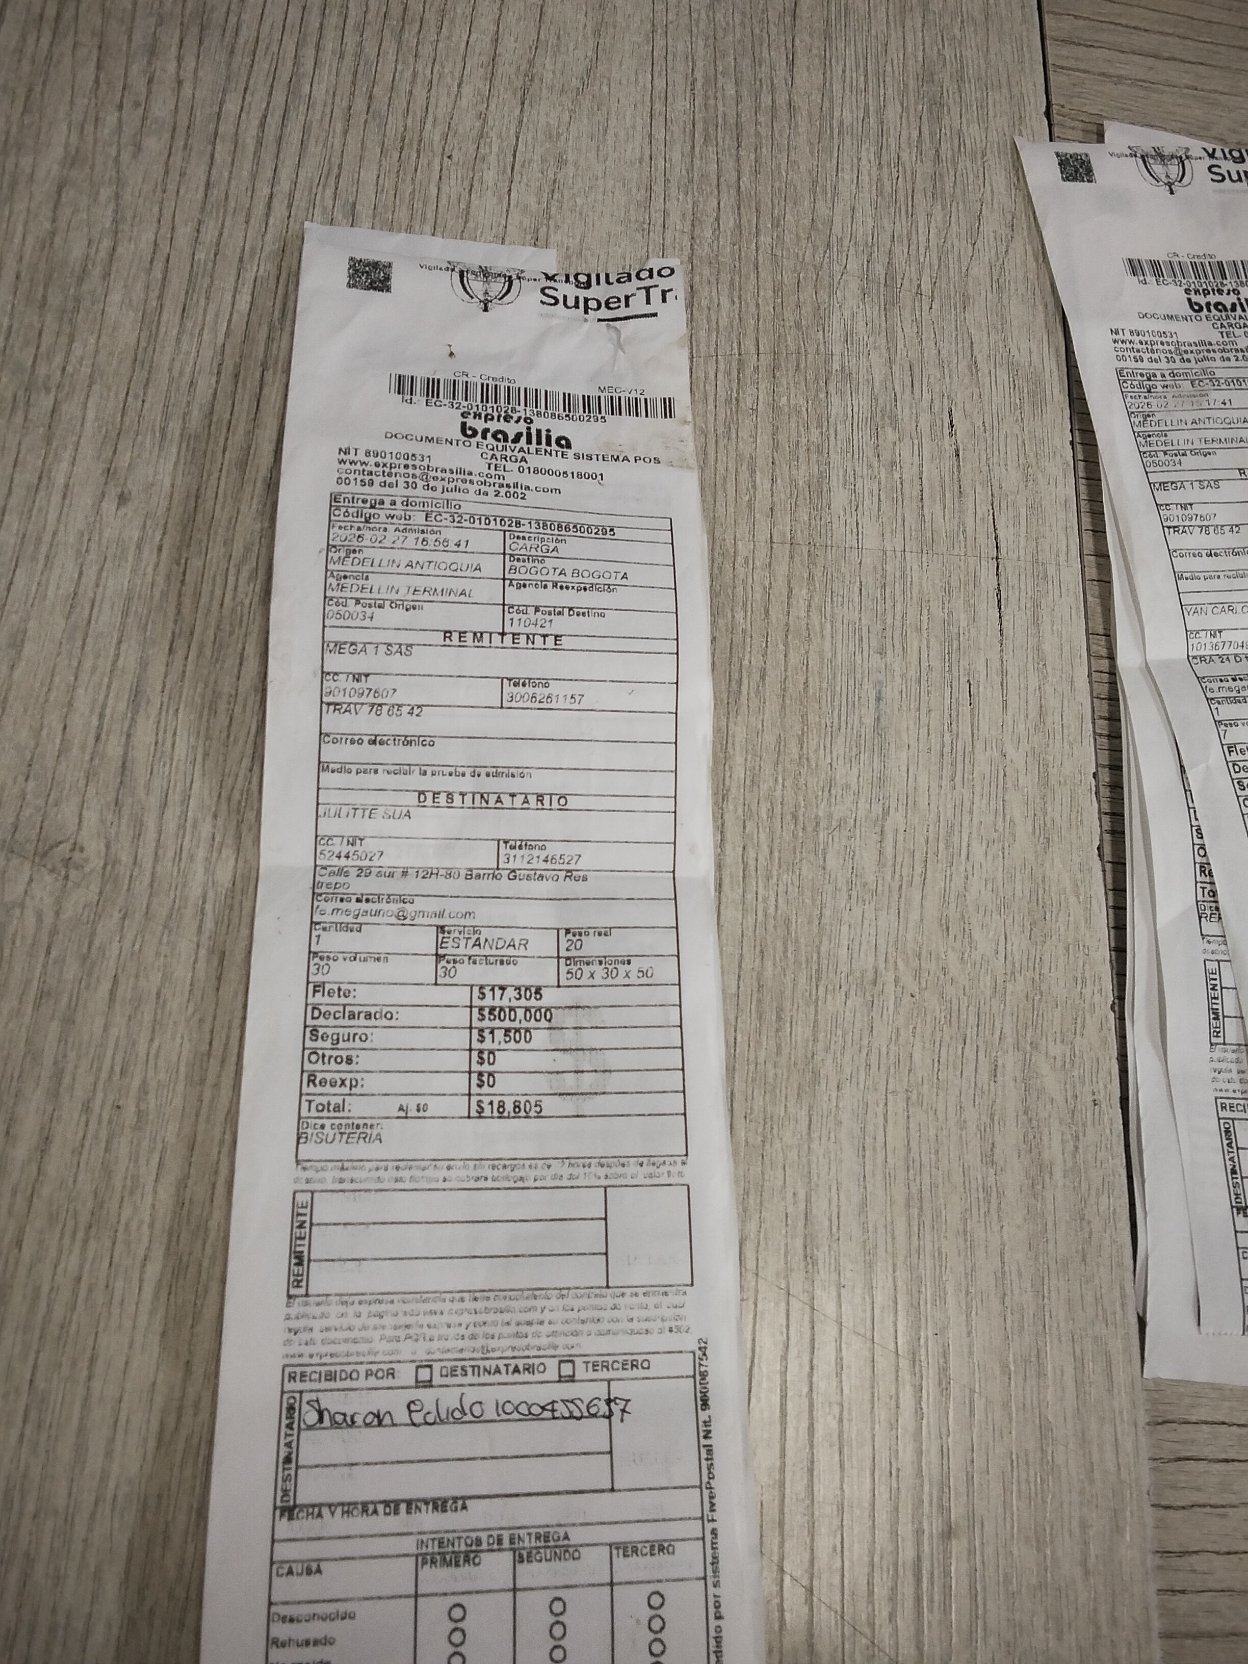 Vigilado
SuperTr
CR - Credito
MEC-V12
Id.: EC-32-0101028-138086500295
expreso
brasilia
DOCUMENTO EQUIVALENTE SISTEMA POS
CARGA
NIT 890100531 TEL. 018000518001
www.expresobrasilia.com
contactenos@expresobrasilia.com
00159 del 30 de julio de 2.002
Entrega a domicilio
Código web: EC-32-0101028-138086500295
Fecha/hora Admisión Descripción
2026-02-27 16:56:41 CARGA
Origen Destino
MEDELLIN ANTIOQUIA BOGOTA BOGOTA
Agencia Agencia Reexpedición
MEDELLIN TERMINAL
Cód. Postal Origen Cód. Postal Destino
050034 110421
REMITENTE
MEGA 1 SAS
CC. / NIT Teléfono
901097607 3006261157
TRAV 78 65 42
Correo electrónico
Medio para recibir la prueba de admisión
DESTINATARIO
JULITTE SUA
CC. / NIT Teléfono
52445027 3112146527
Calle 29 sur # 12H-80 Barrio Gustavo Res
trepo
Correo electrónico
fe.megauno@gmail.com
Cantidad Servicio Peso real
1 ESTANDAR 20
Peso volumen Peso facturado Dimensiones
30 30 50 x 30 x 50
Flete: $17,305
Declarado: $500,000
Seguro: $1,500
Otros: $0
Reexp: $0
Total: Aj. $0 $18,805
Dice contener:
BISUTERIA
REMITENTE
RECIBIDO POR: DESTINATARIO TERCERO
DESTINATARIO
Sharon Pulido
FECHA Y HORA DE ENTREGA
INTENTOS DE ENTREGA
CAUSA PRIMERO SEGUNDO TERCERO
Desconocido
Rehusado
sistema FivePostal Nit. 900087542
CR - Credito
expreso
NIT 890100531
www.expresobrasilia.com
Entrega a domicilio
MEDELLIN ANTIOQUIA
050034
MEGA 1 SAS
901097607
TRAV 78 65 42
REMITENTE
DESTINATARIO